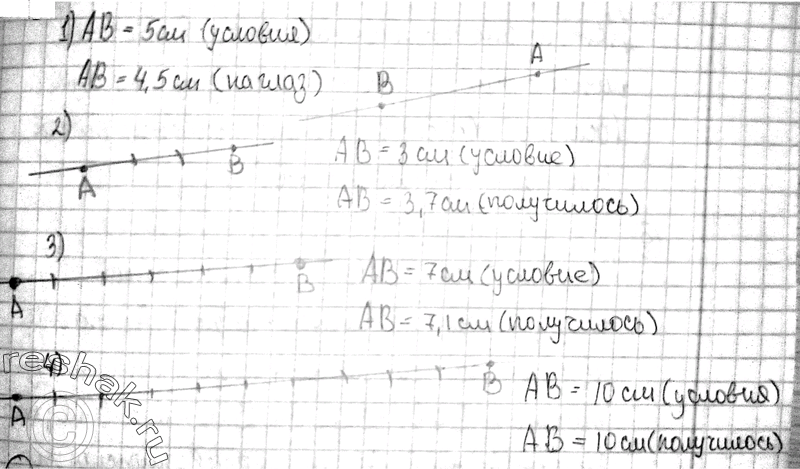 1) AB = 5 см (условия)
AB = 4,5 см (на глаз)
B A
2)
A B
AB = 3 см (условие)
AB = 3,7 см (получилось)
3)
A B
AB = 7 см (условие)
AB = 7,1 см (получилось)
4)
A B
AB = 10 см (условия)
AB = 10 см (получилось)
reshak.ru
©